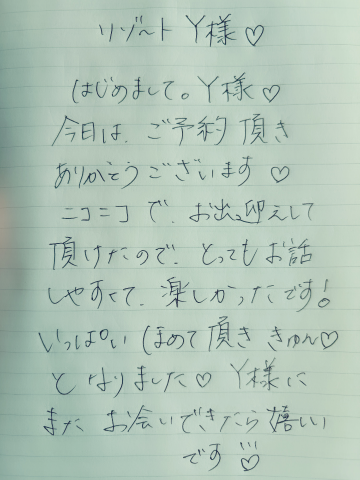 リゾート Y様♡
はじめまして。Y様♡
今日は、ご予約頂き
ありがとうございます♡
ニコニコで、お出迎えして
頂けたので、とってもお話
しやすくて、楽しかったです!
いっぱいほめて頂ききゅん♡
となりました♡ Y様に
またお会いできたら嬉しい
です♡